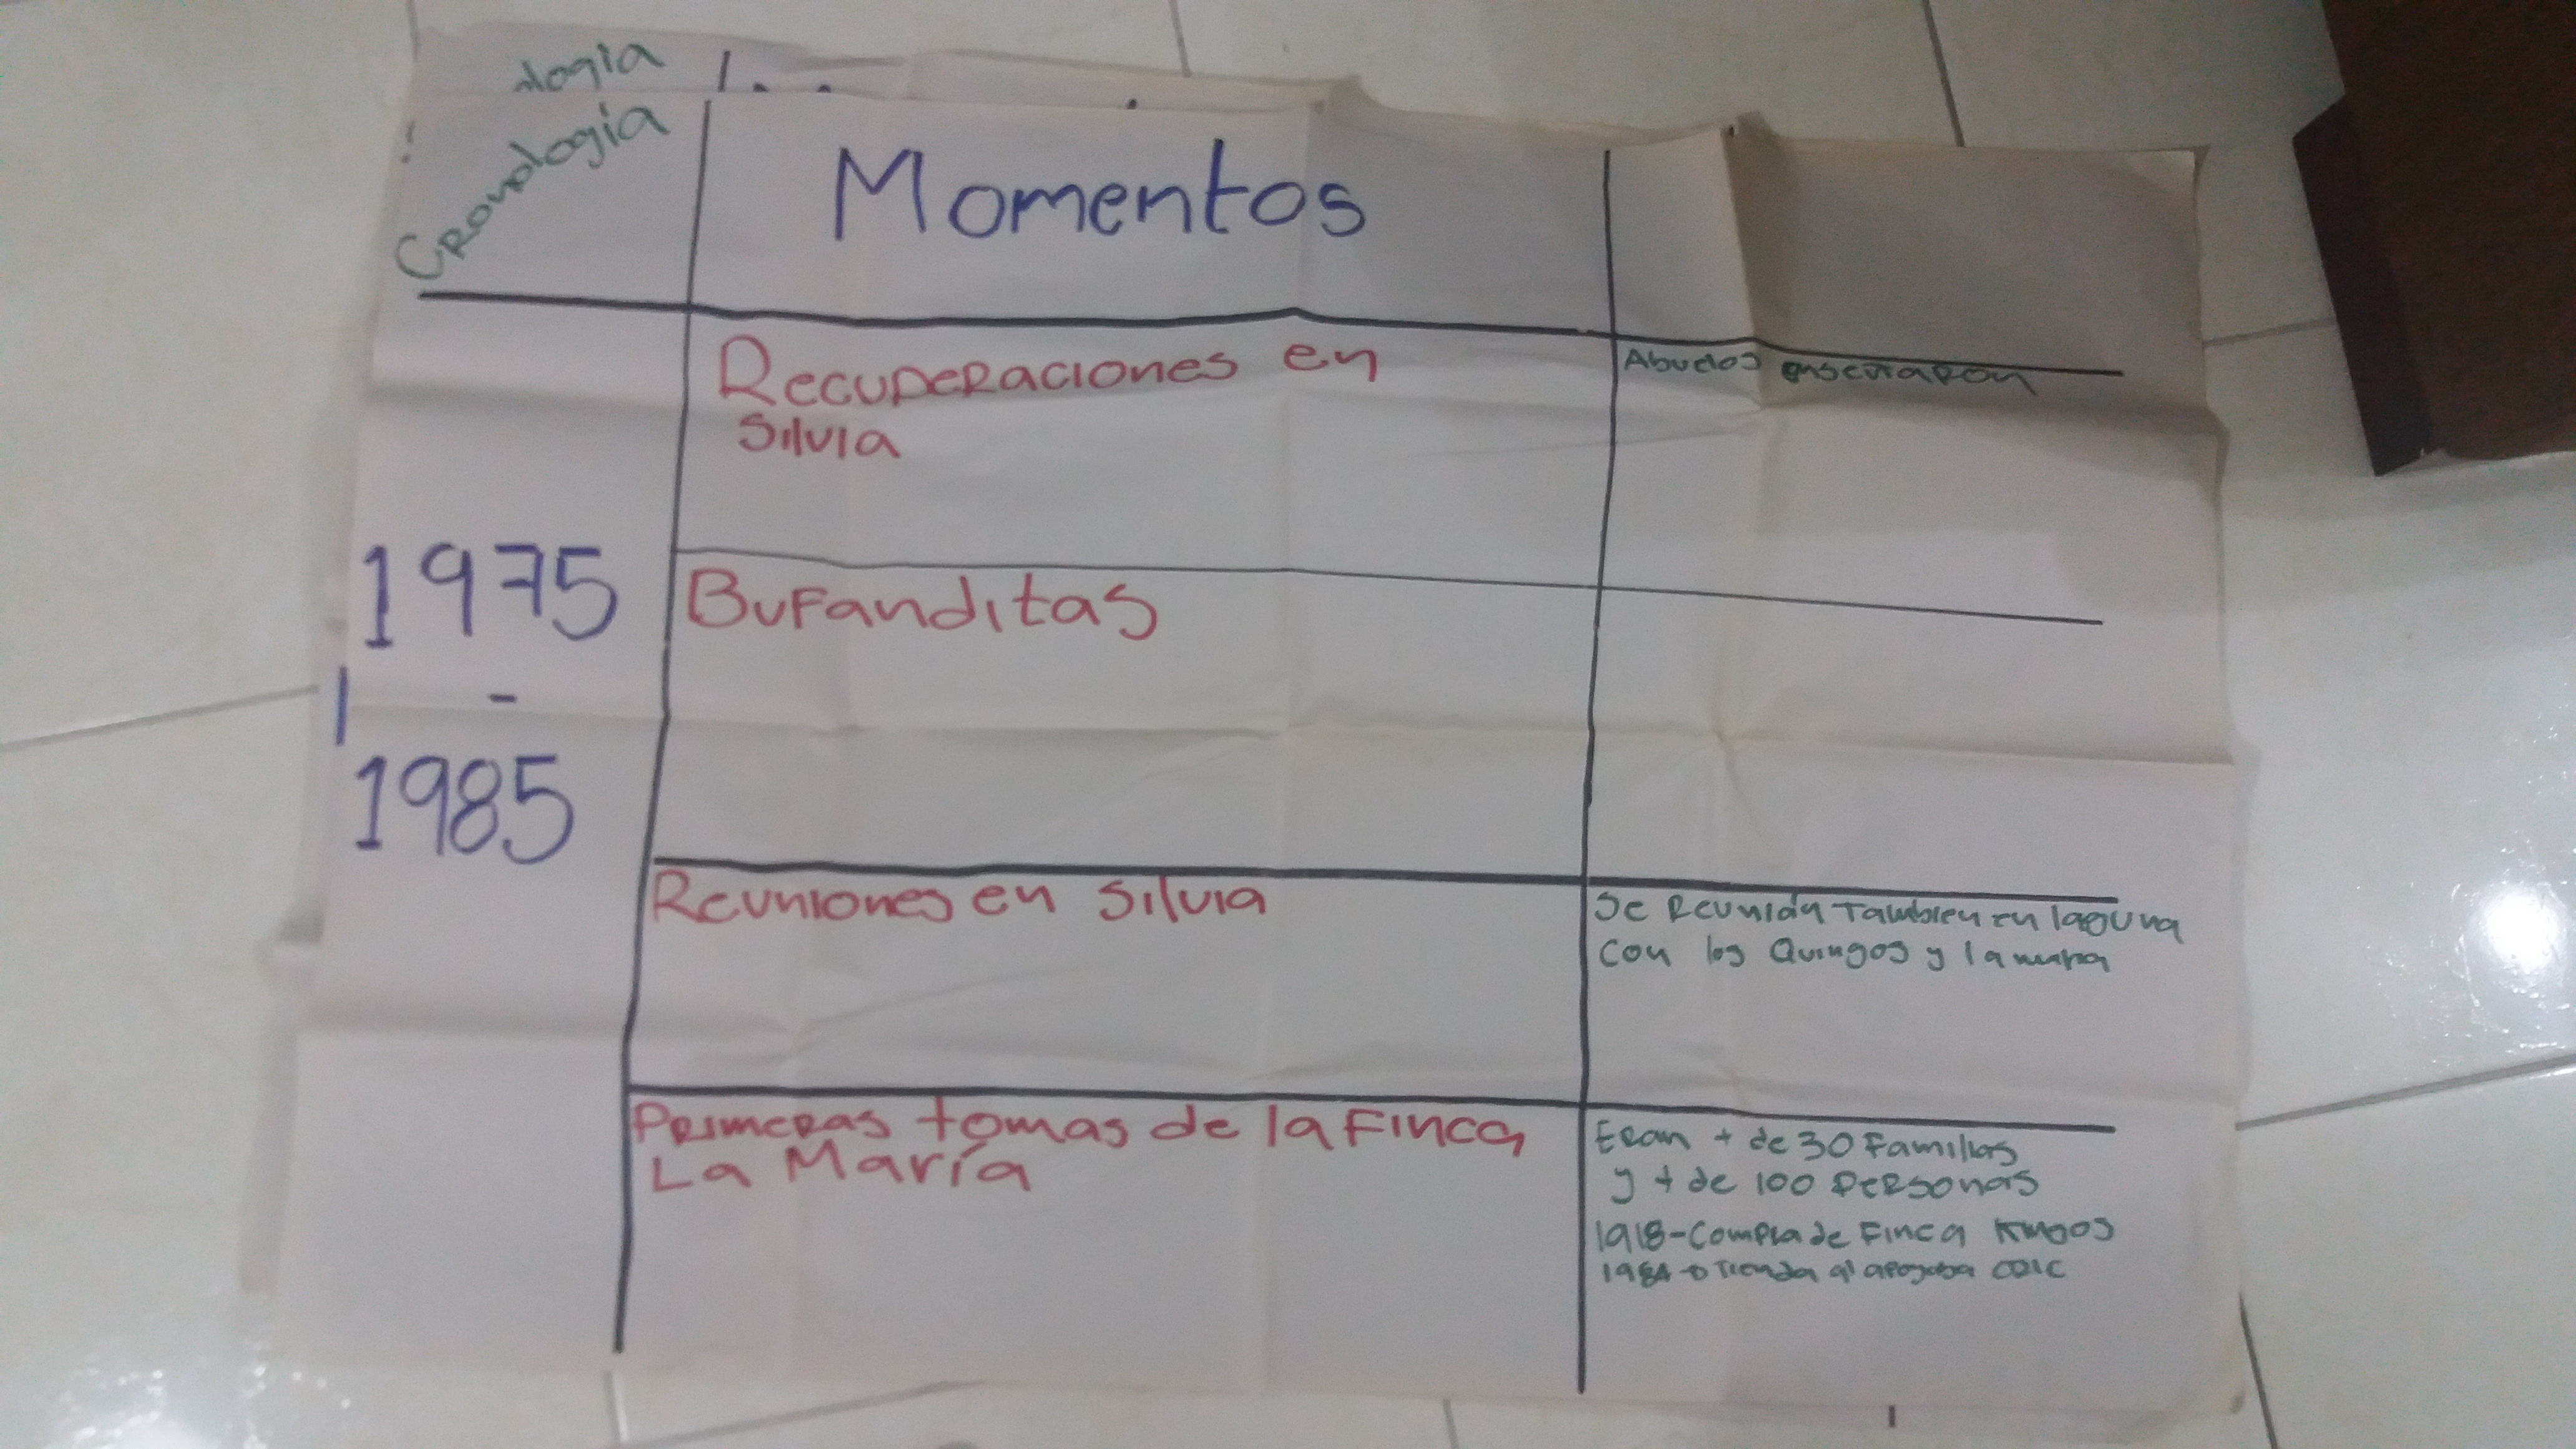 ología
Cronología
Momentos
Recuperaciones en
Silvia
Abuelos enseñaron
1975
-
1985
Bufanditas
Reuniones en Silvia
Se Reunían Tambien en laguna
con los Quingos y la
Primeras tomas de la Finca
La María
Eran + de 30 Familias
y + de 100 Personas
1918-Compra de Finca
1984 Tienda apoyaba CRIC